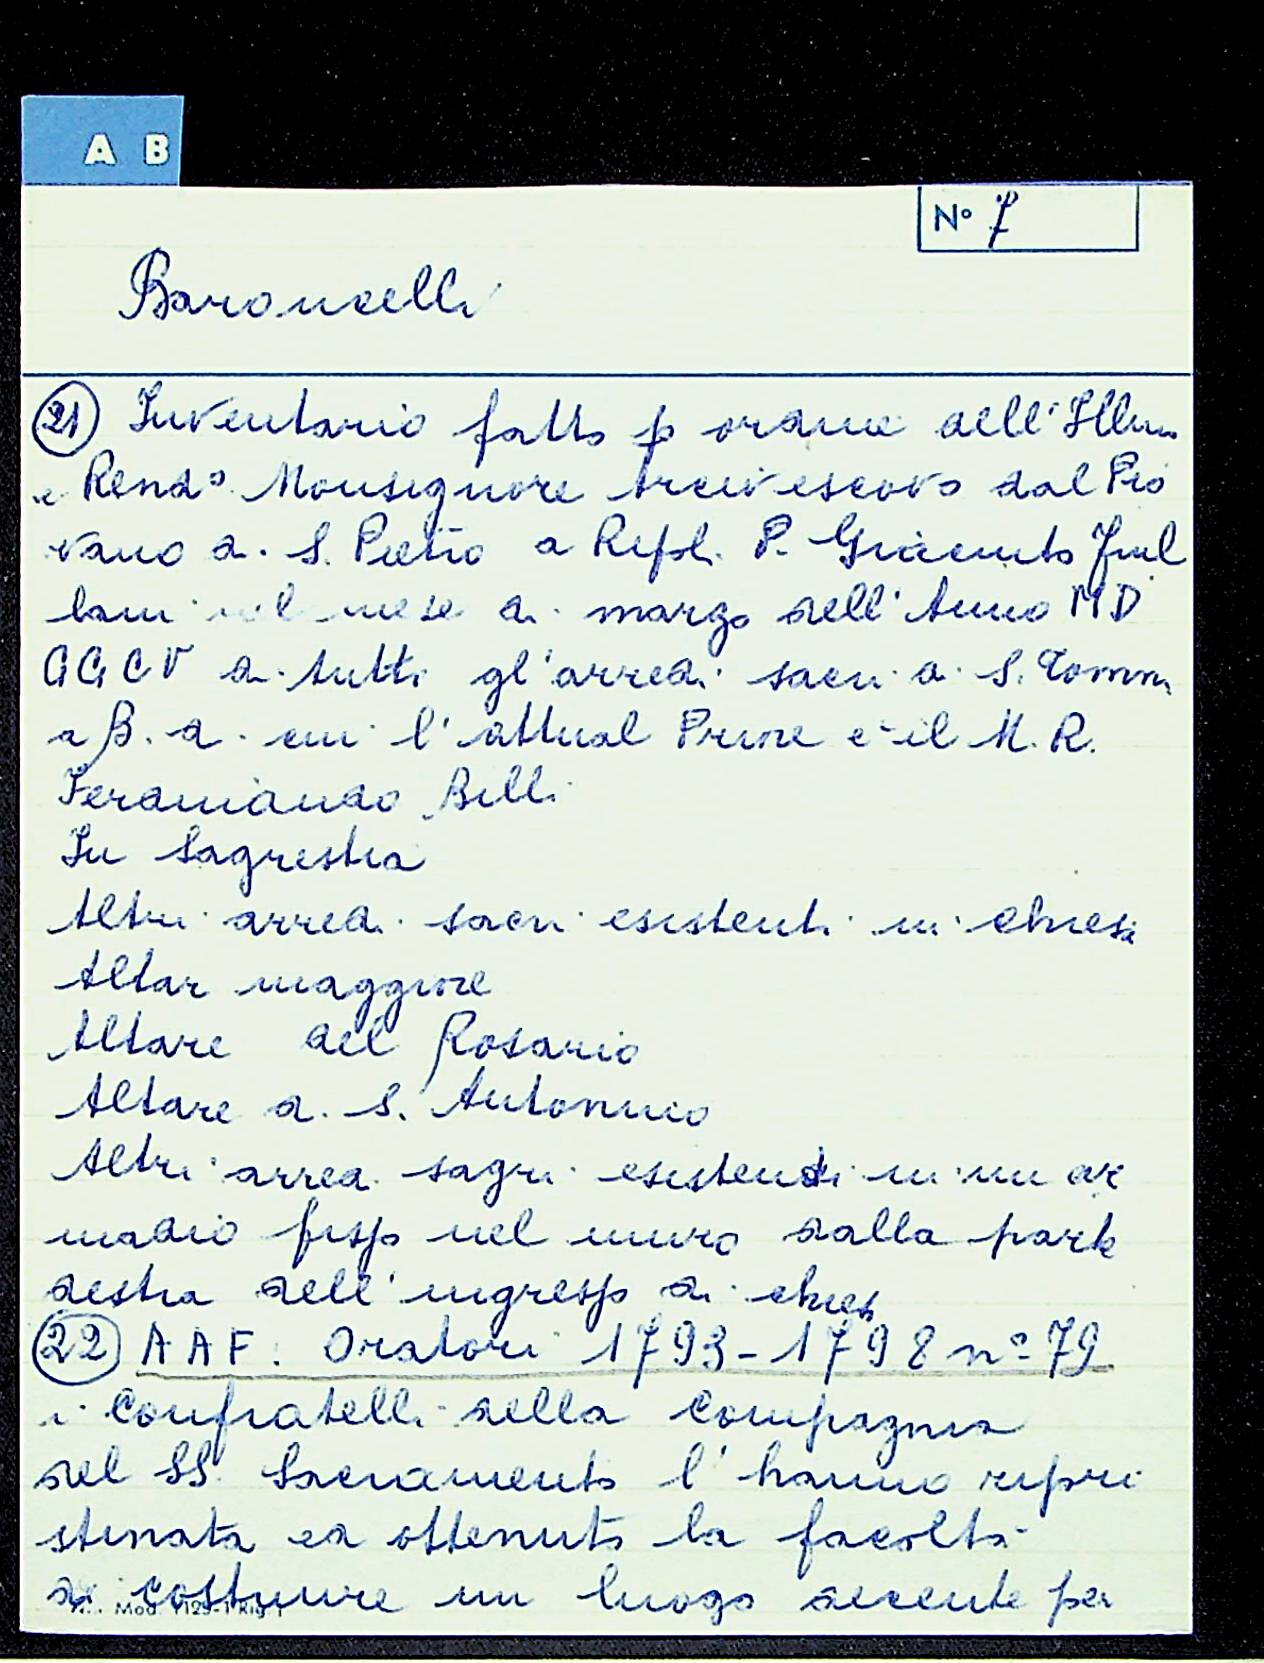 A B
Nº 7
Baroncelli
21 Inventario fatto p ordine dell'Illmo
e Rendº Monsignore Arcivescovo dal Pio
vano di S. Pietro a Ripoli P. Giacinto
lani nel mese di marzo dell'Anno MD
CCCV di tutti gl'arredi sacri di S. Tomm.
a B. di cui l'attual Priore è il M. R.
Ferdinando Billi
In Sagrestia
Altri arredi sacri esistenti in chiesa
Altar maggiore
Altare del Rosario
Altare di S. Antonino
Altri arredi sagri esistenti in un ar
madio fisso nel muro dalla parte
destra dell'ingresso di chiesa
22 AAF. Oratori 1793-1798 nº 79
i confratelli della Compagnia
del SS. Sacramento l'hanno ripri
stinata ed ottenuto la facoltà
di costruire un luogo decente per